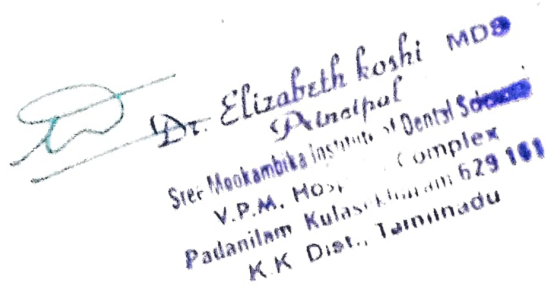 Dr. Elizabeth koshi MDS
Principal
Sree Mookambika Institute of Dental Science
V.P.M. Complex
Padanilam Kulasekharam 629 161
K.K Dist., Tamilnadu